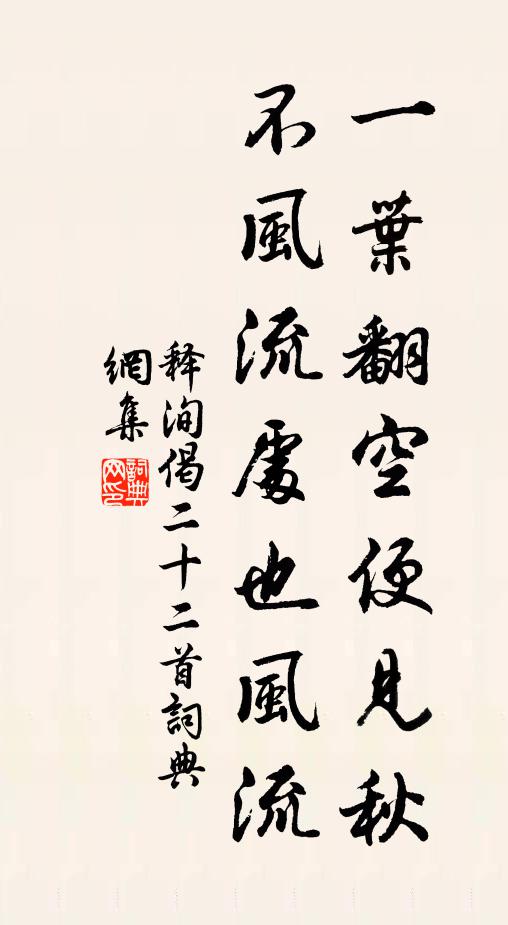 一葉翻空便見秋
不風流處也風流
释洵偈二十二首詞典
網集
詞典
网印